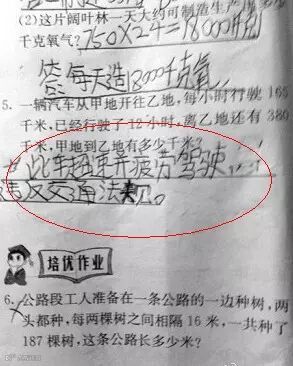 (2)这片阔叶林一天大约可制造生产
千克氧气? 750×24=18000
答每天造18000千克氧
5. 一辆汽车从甲地开往乙地,每小时行驶165
千米,已经行驶了12小时,离乙地还有380
千米,甲地到乙地有多少千米?
此车超速并疲劳驾驶
违反交通法规。
培优作业
6. 公路段工人准备在一条公路的一边种树,两
头都种,每两棵树之间相隔16米,一共种了
187棵树,这条公路长多少米?